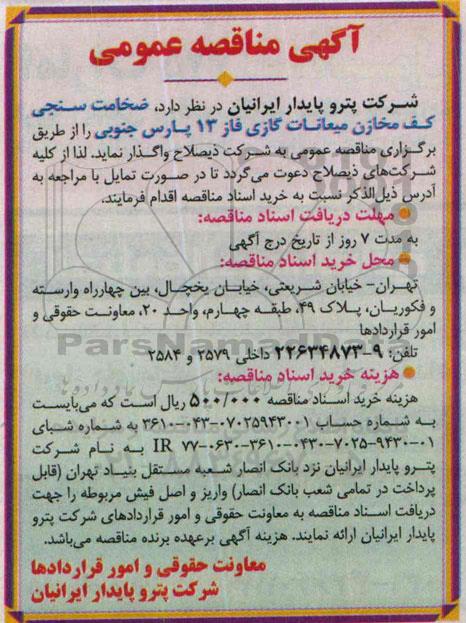 آگهی مناقصه عمومی
شرکت پترو پایدار ایرانیان در نظر دارد، ضخامت سنجی
کف مخازن میعانات گازی فاز ۱۳ پارس جنوبی را از طریق
برگزاری مناقصه عمومی به شرکت ذیصلاح واگذار نماید. لذا از کلیه
شرکت‌های ذیصلاح دعوت می‌گردد تا در صورت تمایل با مراجعه به
آدرس ذیل‌الذکر نسبت به خرید اسناد مناقصه اقدام فرمایند.
مهلت دریافت اسناد مناقصه:
به مدت ۷ روز از تاریخ درج آگهی
محل خرید اسناد مناقصه:
تهران- خیابان شریعتی، خیابان یخچال، بین چهارراه وارسته
و فکوریان، پلاک ۴۹، طبقه چهارم، واحد ۲۰، معاونت حقوقی و
امور قراردادها
ParsNamadData
تلفن: ۹-۲۲۶۳۴۸۷۳ داخلی ۲۵۷۹ و ۲۵۸۴
هزینه خرید اسناد مناقصه:
هزینه خرید اسناد مناقصه ۵۰۰/۰۰۰ ریال است که می‌بایست
به شماره حساب ۳۶۱۰-۰۴۳-۰۷۰۲۵۹۴۳۰۰۱ به شماره شبای
IR ۷۷-۰۶۳۰-۳۶۱۰-۰۴۳۰-۷۰۲۵-۹۴۳۰-۰۱ به نام شرکت
پترو پایدار ایرانیان نزد بانک انصار شعبه مستقل بنیاد تهران (قابل
پرداخت در تمامی شعب بانک انصار) واریز و اصل فیش مربوطه را جهت
دریافت اسناد مناقصه به معاونت حقوقی و امور قراردادهای شرکت پترو
پایدار ایرانیان ارائه نمایند. هزینه آگهی برعهده برنده مناقصه می‌باشد.
معاونت حقوقی و امور قراردادها
شرکت پترو پایدار ایرانیان